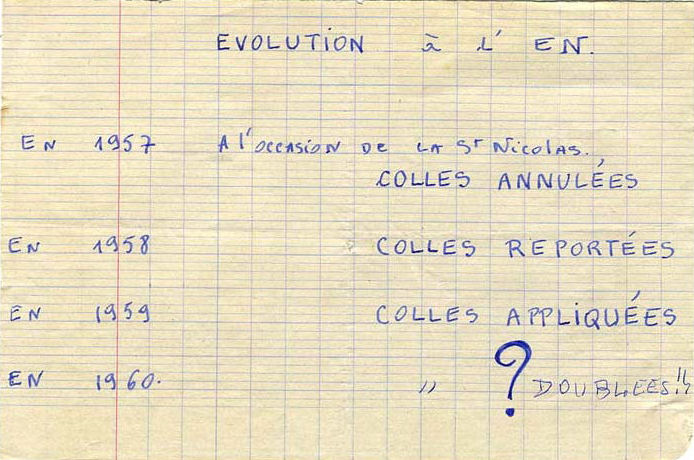 EVOLUTION à L' EN.
EN 1957 A l'occasion de la St Nicolas.,
COLLES ANNULÉES
EN 1958 COLLES REPORTÉES
EN 1959 COLLES APPLIQUÉES
EN 1960. " ? DOUBLEES!!